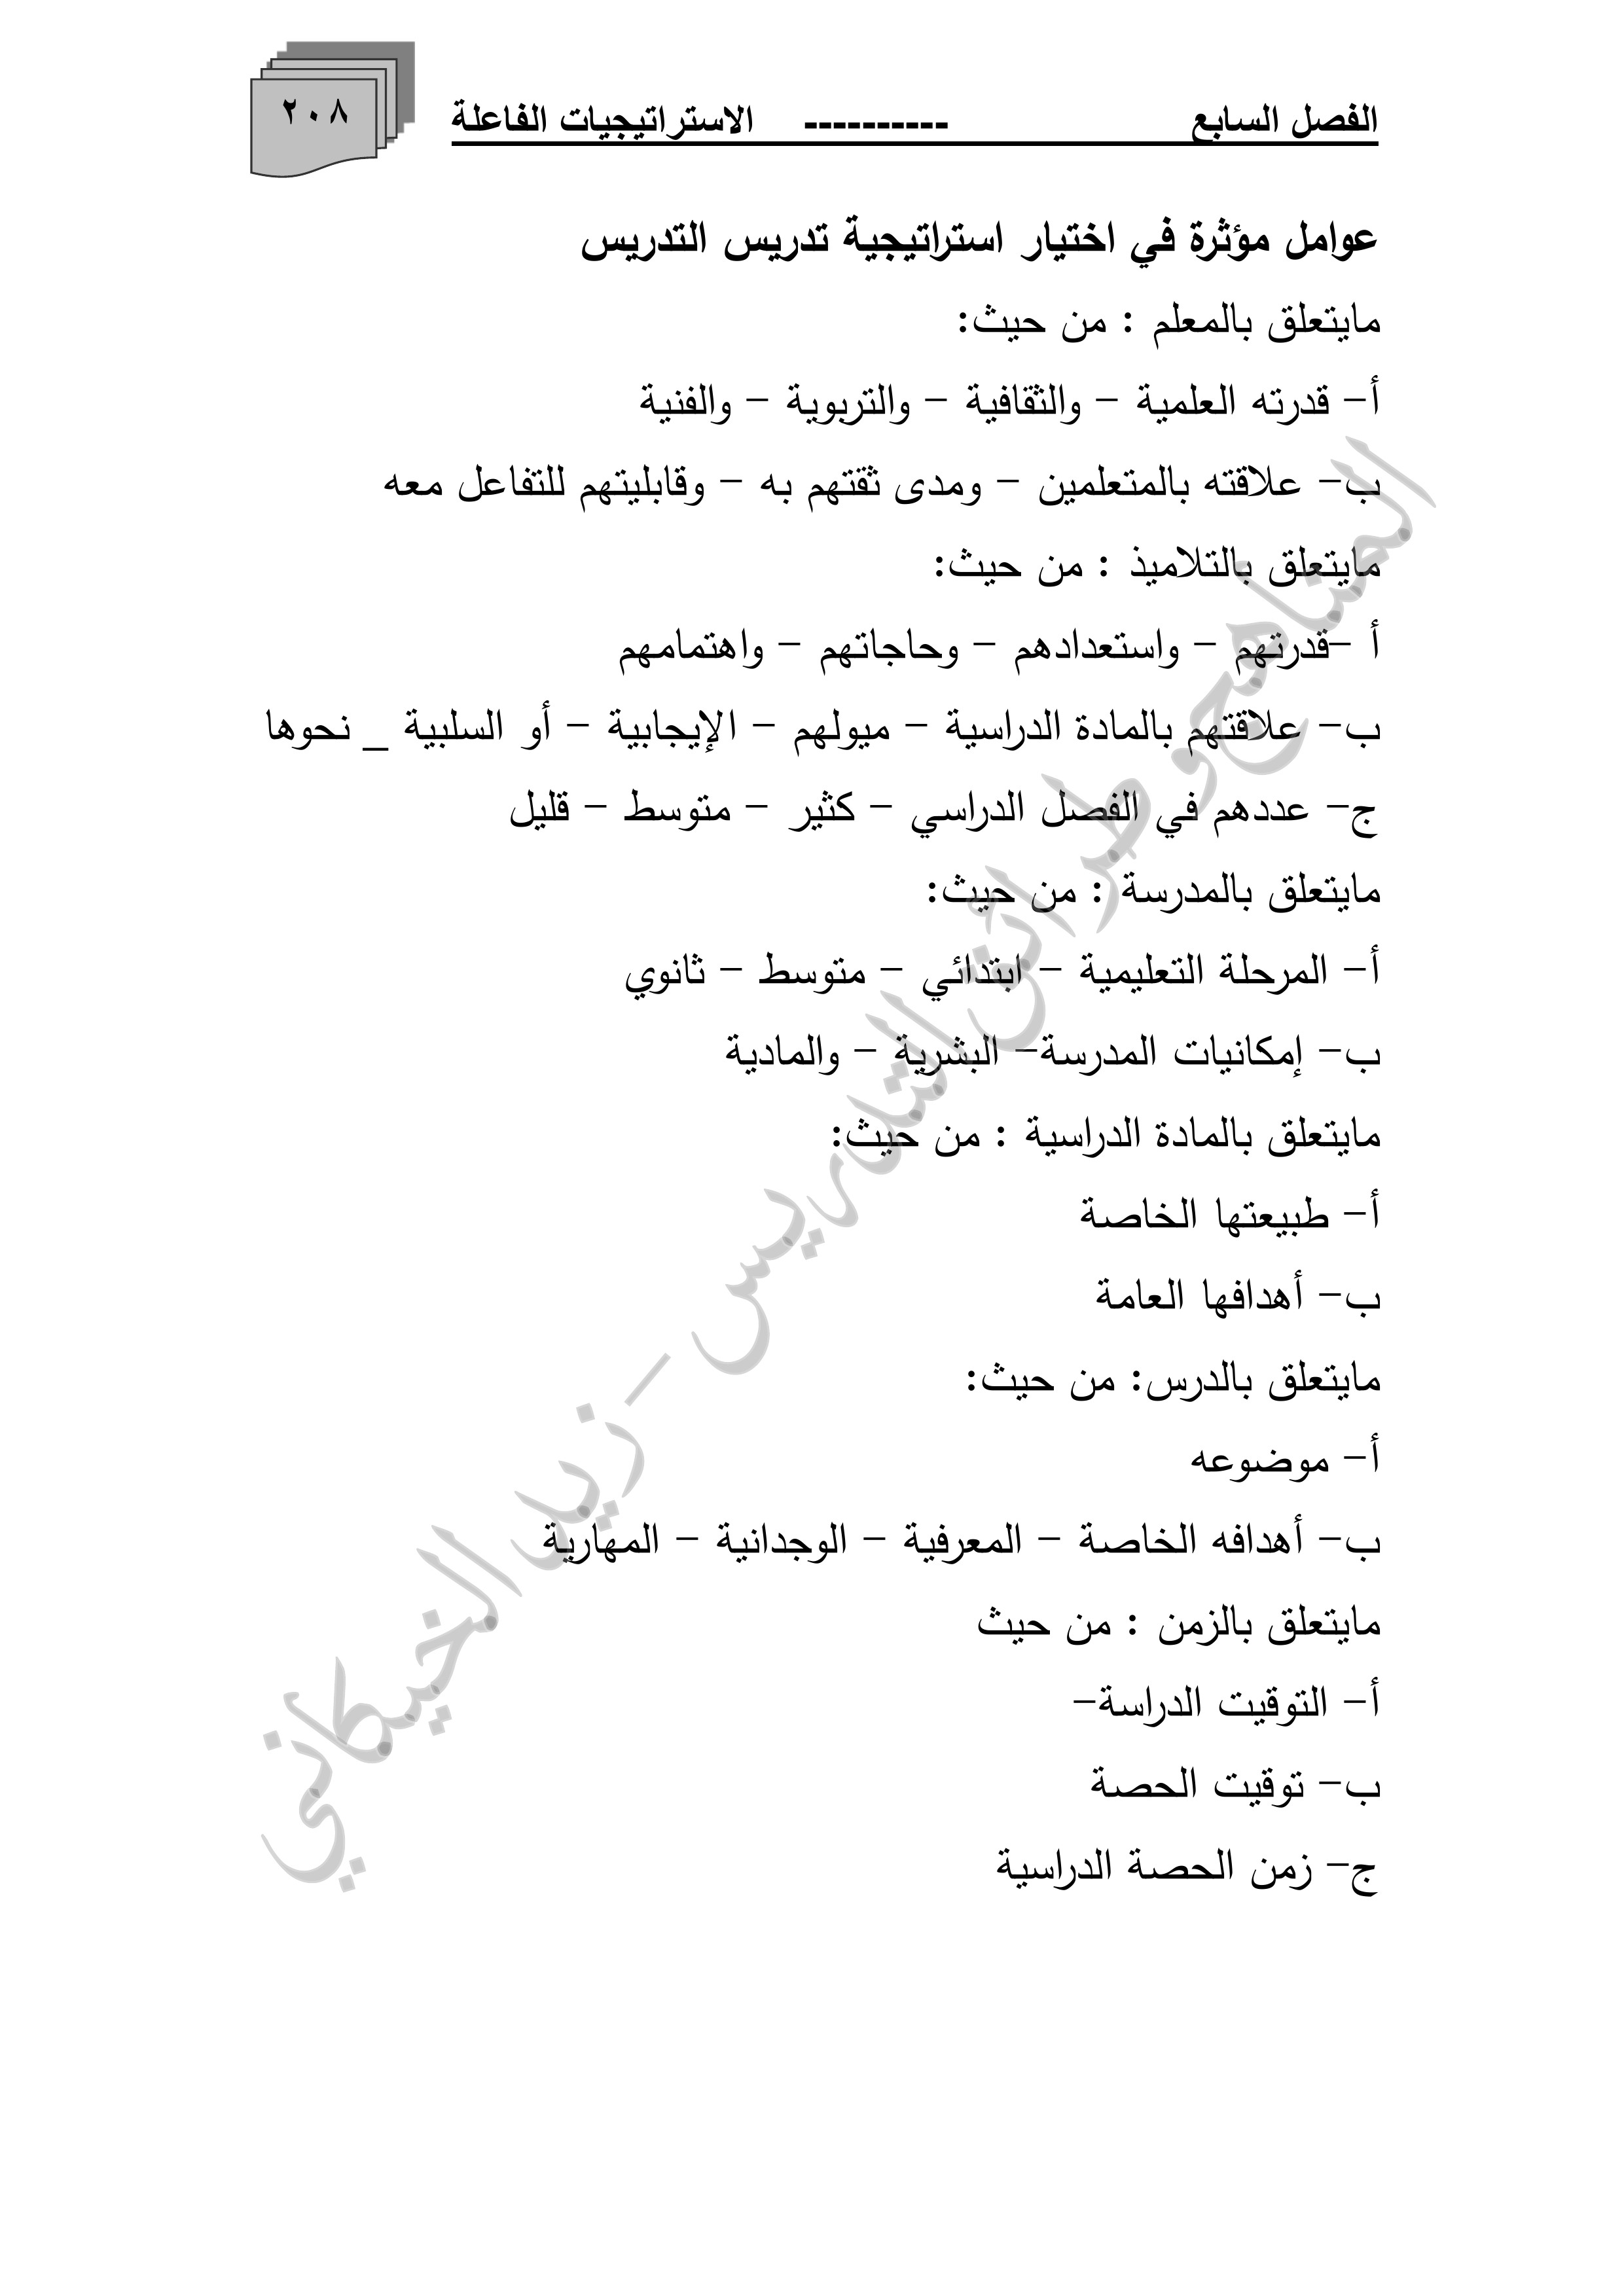 الفصل السابع ---------- الاستراتيجيات الفاعلة
٢٠٨
عوامل مؤثرة في اختيار استراتيجية تدريس التدريس
مايتعلق بالمعلم : من حيث:
أ– قدرته العلمية – والثقافية – والتربوية – والفنية
ب– علاقته بالمتعلمين – ومدى ثقتهم به – وقابليتهم للتفاعل معه
مايتعلق بالتلاميذ : من حيث:
أ –قدرتهم – واستعدادهم – وحاجاتهم – واهتمامهم
ب– علاقتهم بالمادة الدراسية – ميولهم – الإيجابية – أو السلبية _ نحوها
ج– عددهم في الفصل الدراسي – كثير – متوسط – قليل
مايتعلق بالمدرسة : من حيث:
أ– المرحلة التعليمية – ابتدائي – متوسط – ثانوي
ب– إمكانيات المدرسة– البشرية – والمادية
مايتعلق بالمادة الدراسية : من حيث:
أ– طبيعتها الخاصة
ب– أهدافها العامة
مايتعلق بالدرس: من حيث:
أ– موضوعه
ب– أهدافه الخاصة – المعرفية – الوجدانية – المهارية
مايتعلق بالزمن : من حيث
أ– التوقيت الدراسة–
ب– توقيت الحصة
ج– زمن الحصة الدراسية
المناهج وطرائق التدريس – زيد الخيكاني